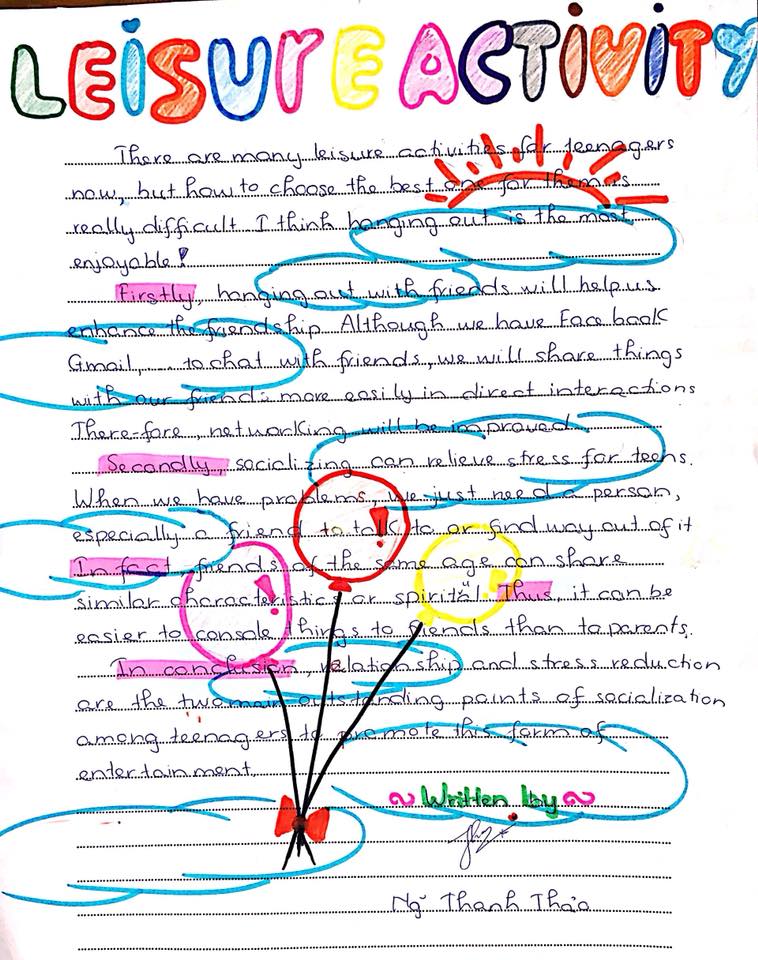 LEISURE ACTIVITY
There are many leisure activities for teenagers
now, but how to choose the best one for them is
really difficult I think hanging out is the most
enjoyable!
Firstly, hanging out with friends will help us
enhance the friendship. Although we have Face book
Gmail,.... to chat with friends, we will share things
with our friends more easily in direct interactions
There-fore, networking will be improved.
Secondly, socializing can relieve stress for teens.
When we have problems, we just need a person,
especially a friend to talk to or find way out of it
In fact, friends of the same age can share
similar characteristics or spirits. Thus, it can be
easier to console things to friends than to parents.
In conclusion, relationship and stress reduction
are the two main outstanding points of socialization
among teenagers to promote this form of
entertainment.
~ Written by ~
Ng~ Thanh Thảo